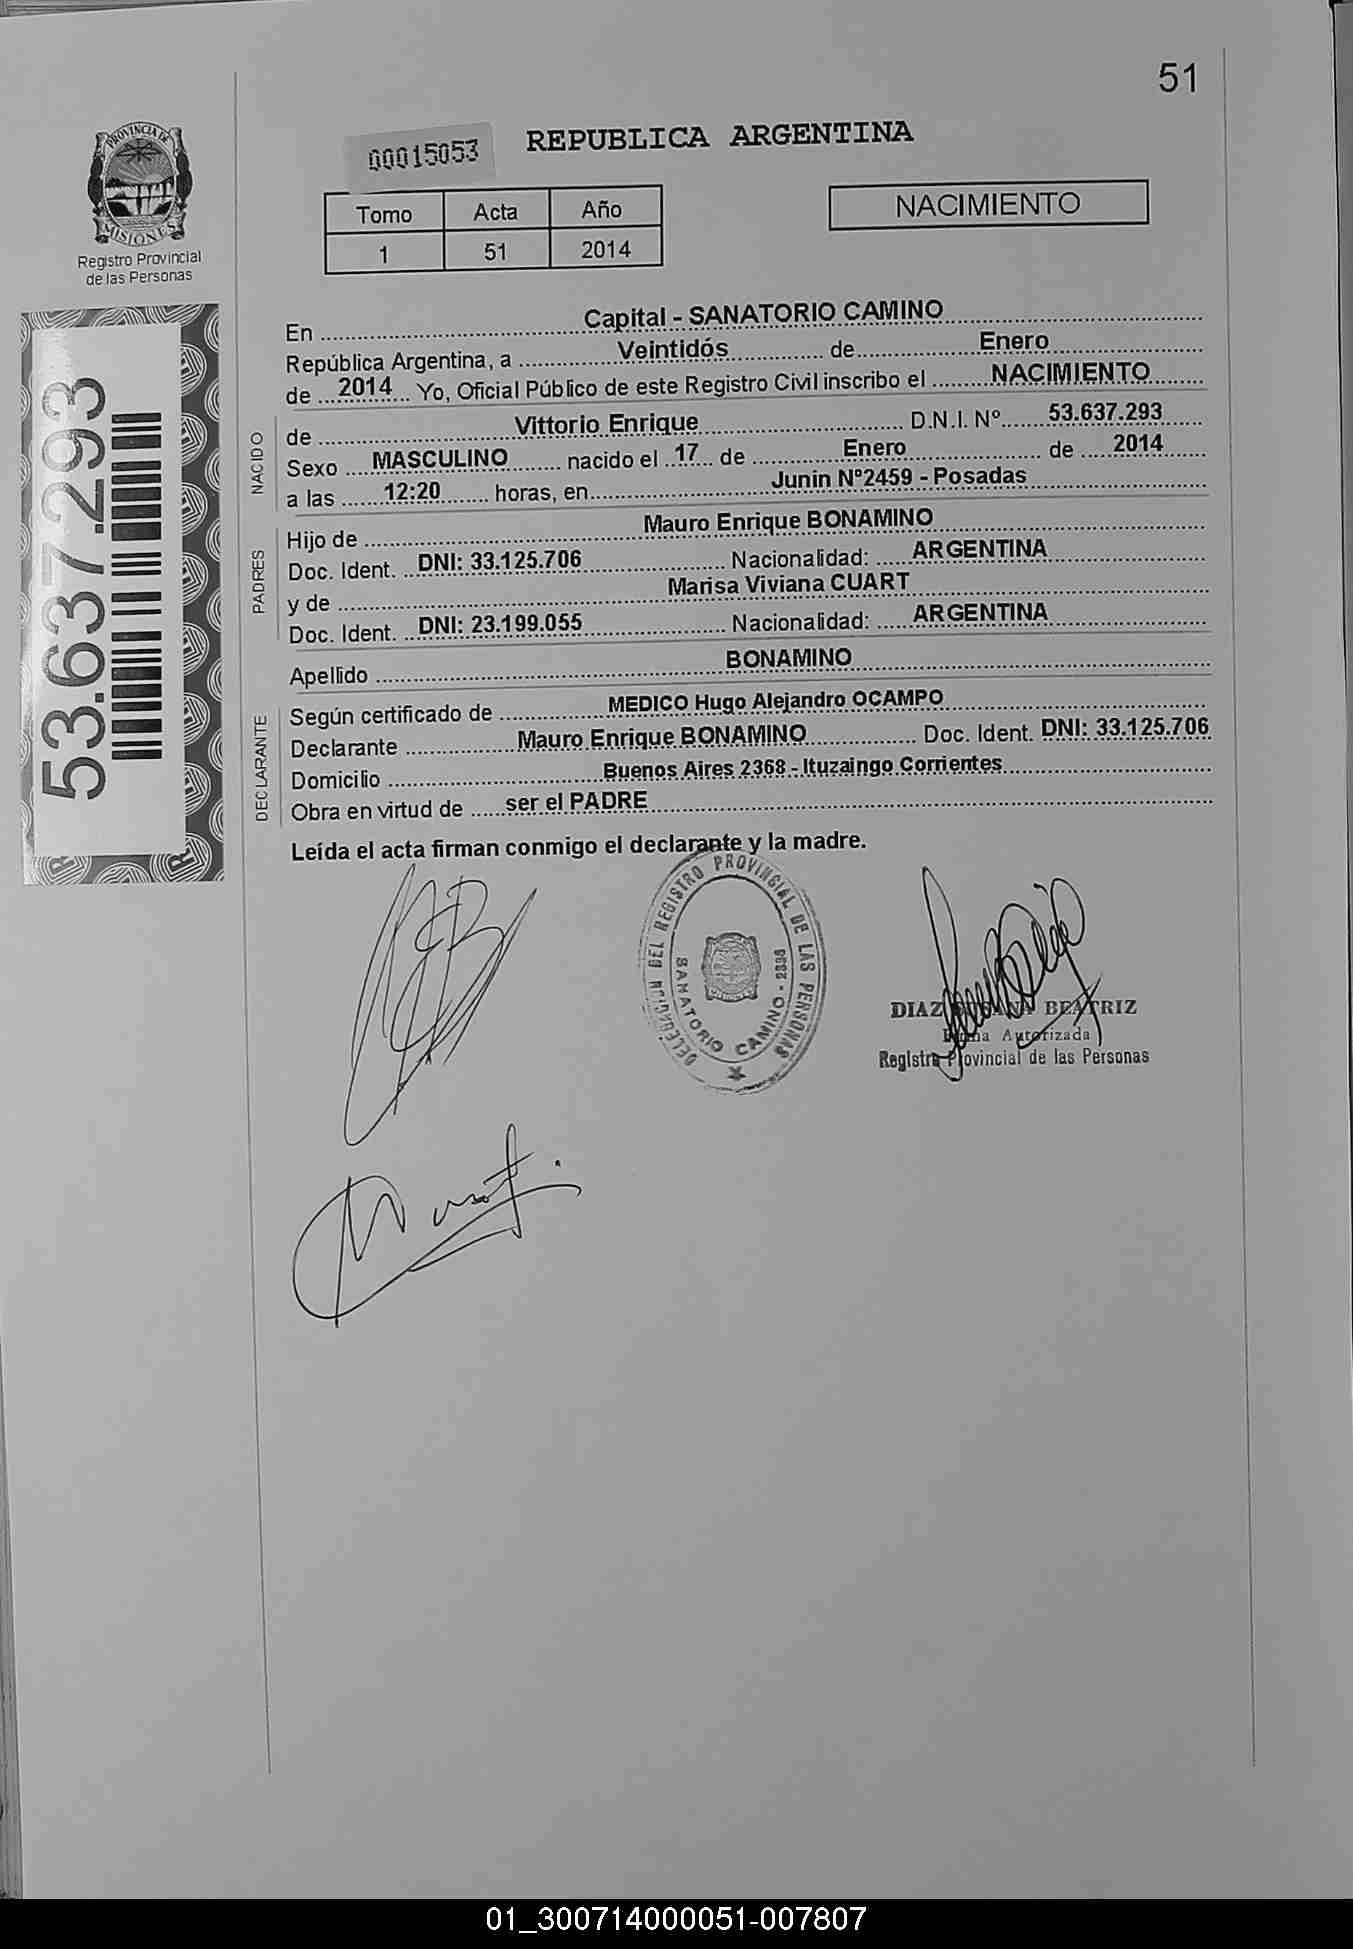 51
PROVINCIA DE
MISIONES
Registro Provincial
de las Personas
00015053
REPUBLICA ARGENTINA
Tomo Acta Año
1 51 2014
NACIMIENTO
53.637.293
En Capital - SANATORIO CAMINO
República Argentina, a Veintidós de Enero
de 2014 Yo, Oficial Público de este Registro Civil inscribo el NACIMIENTO
NACIDO
de Vittorio Enrique D.N.I. Nº 53.637.293
Sexo MASCULINO nacido el 17 de Enero de 2014
a las 12:20 horas, en Junin Nº2459 - Posadas
PADRES
Hijo de Mauro Enrique BONAMINO
Doc. Ident. DNI: 33.125.706 Nacionalidad: ARGENTINA
y de Marisa Viviana CUART
Doc. Ident. DNI: 23.199.055 Nacionalidad: ARGENTINA
Apellido BONAMINO
DECLARANTE
Según certificado de MEDICO Hugo Alejandro OCAMPO
Declarante Mauro Enrique BONAMINO Doc. Ident. DNI: 33.125.706
Domicilio Buenos Aires 2368 - Ituzaingo Corrientes
Obra en virtud de ser el PADRE
Leída el acta firman conmigo el declarante y la madre.
DELEGACION DEL REGISTRO PROVINCIAL DE LAS PERSONAS
SANATORIO CAMINO - 2396
DIAZ BEATRIZ
Autorizada
Registro Provincial de las Personas
01_300714000051-007807